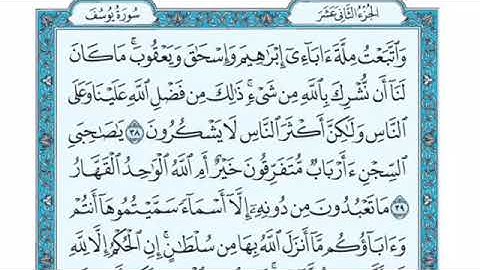 الجزء الثاني عشر
سورة يوسف
وَٱتَّبَعۡتُ مِلَّةَ ءَابَآءِيٓ إِبۡرَٰهِيمَ وَإِسۡحَٰقَ وَيَعۡقُوبَۚ مَا كَانَ
لَنَآ أَن نُّشۡرِكَ بِٱللَّهِ مِن شَيۡءٖۚ ذَٰلِكَ مِن فَضۡلِ ٱللَّهِ عَلَيۡنَا وَعَلَى
ٱلنَّاسِ وَلَٰكِنَّ أَكۡثَرَ ٱلنَّاسِ لَا يَشۡكُرُونَ ٣٨ يَٰصَٰحِبَيِ
ٱلسِّجۡنِ ءَأَرۡبَابٞ مُّتَفَرِّقُونَ خَيۡرٌ أَمِ ٱللَّهُ ٱلۡوَٰحِدُ ٱلۡقَهَّارُ
٣٩ مَا تَعۡبُدُونَ مِن دُونِهِۦٓ إِلَّآ أَسۡمَآءٗ سَمَّيۡتُمُوهَآ أَنتُمۡ
وَءَابَآؤُكُم مَّآ أَنزَلَ ٱللَّهُ بِهَا مِن سُلۡطَٰنٍۚ إِنِ ٱلۡحُكۡمُ إِلَّا لِلَّهِ